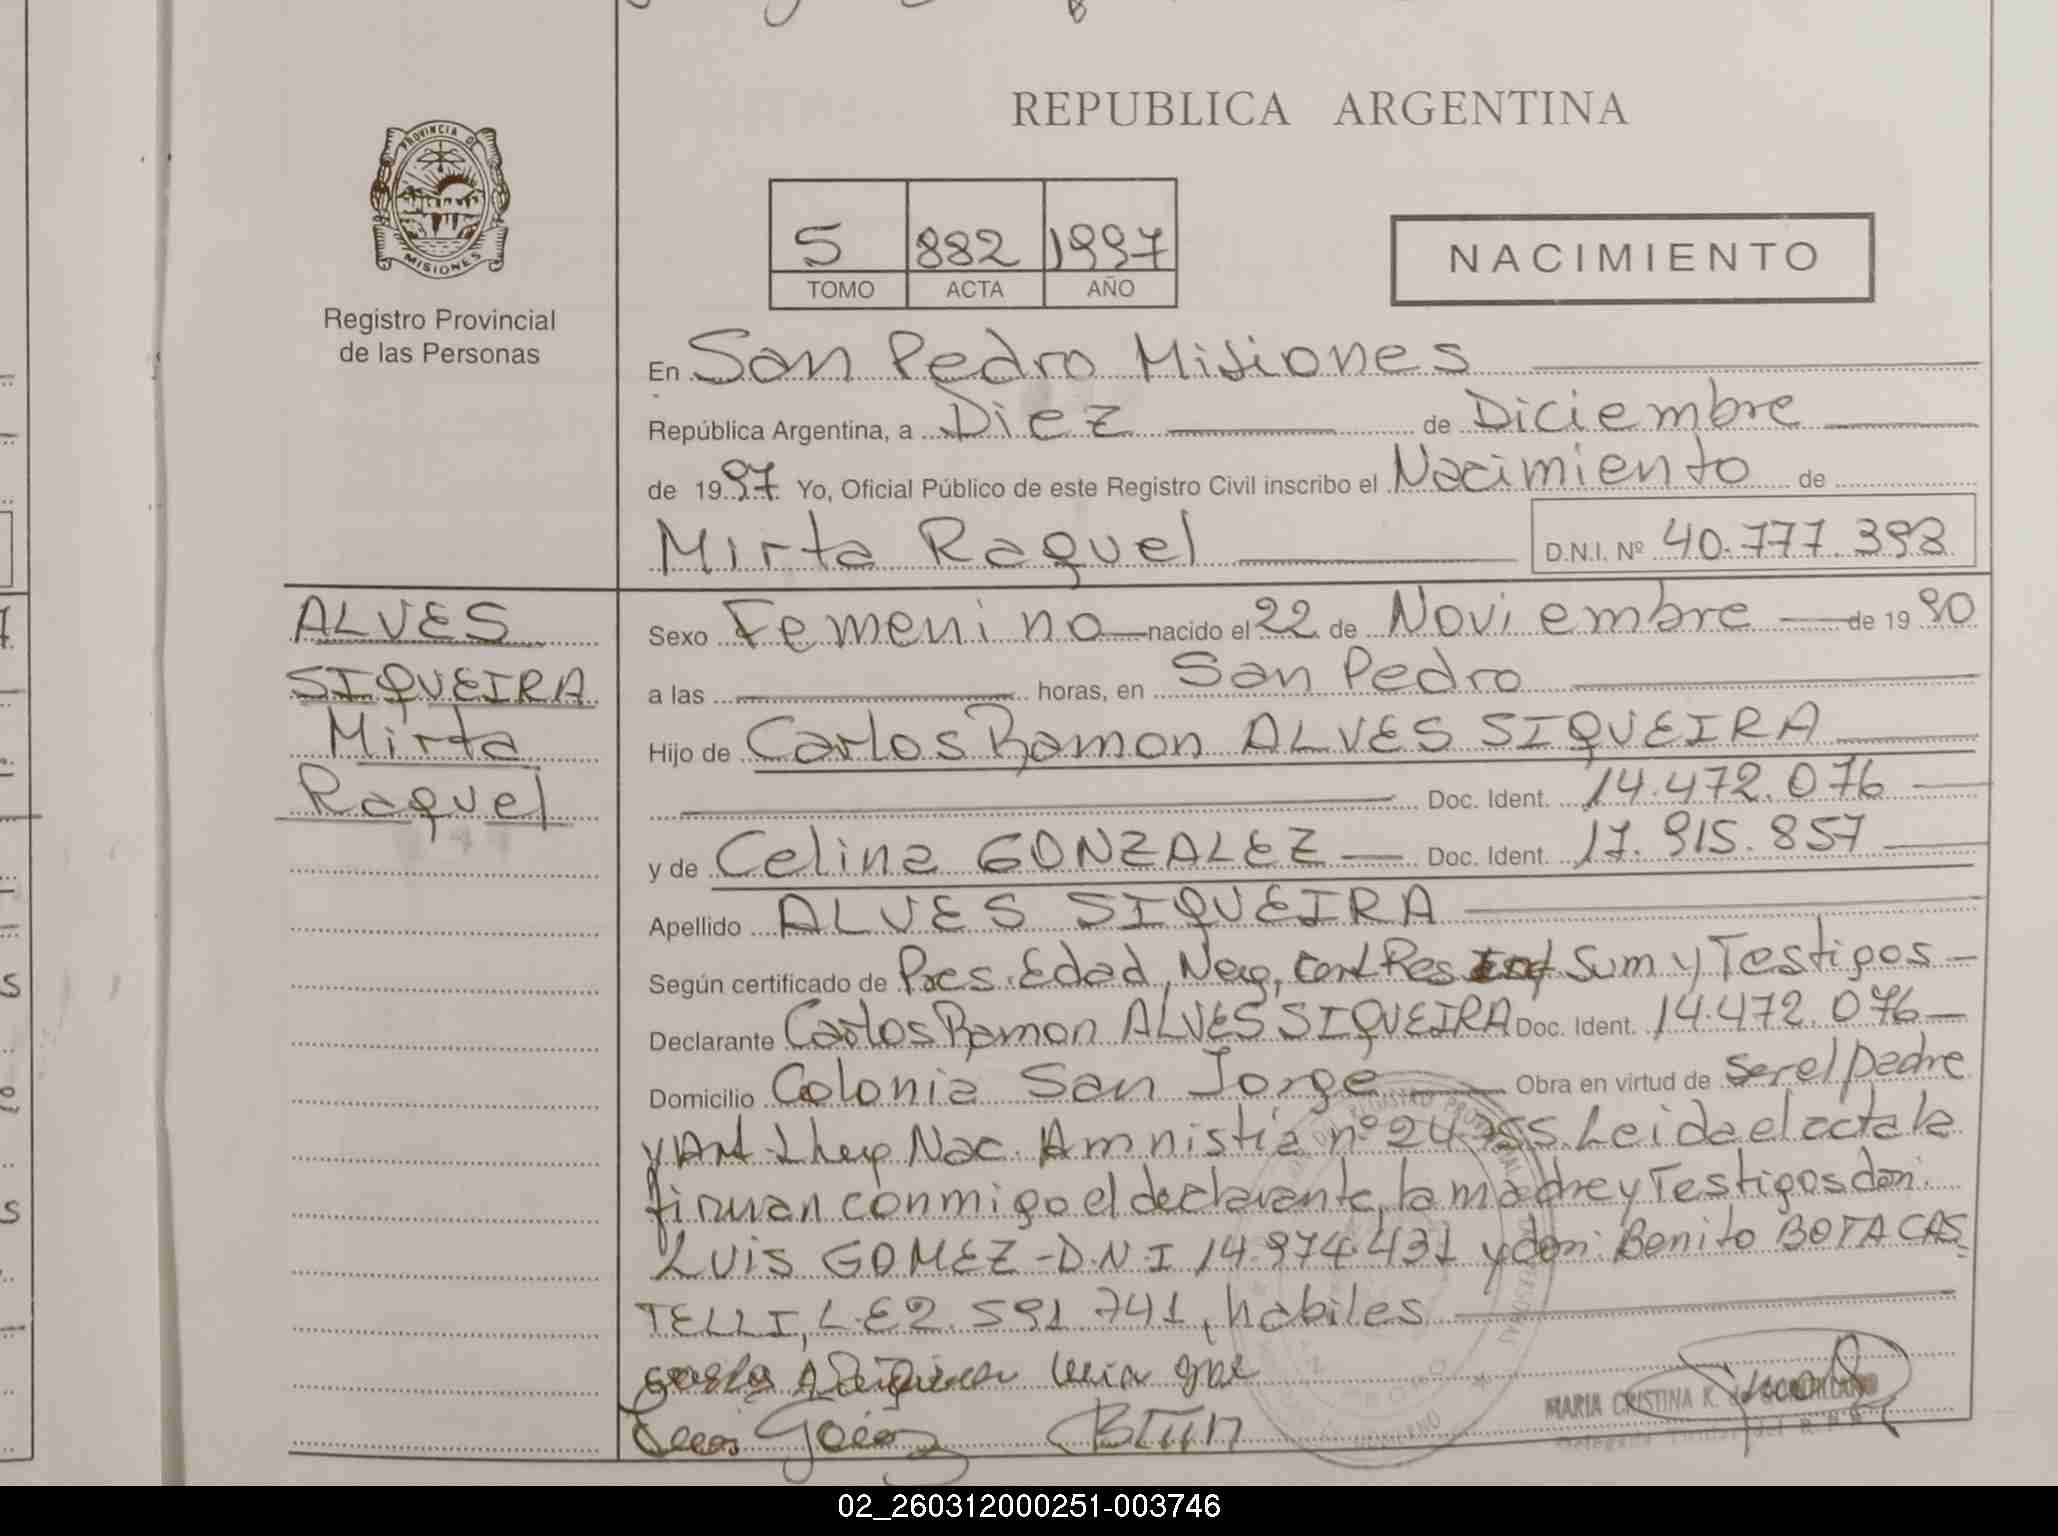 REPUBLICA ARGENTINA
PROVINCIA DE
MISIONES
Registro Provincial
de las Personas
5 882 1997
TOMO ACTA AÑO
NACIMIENTO
En San Pedro Misiones
República Argentina, a Diez de Diciembre
de 1997 Yo, Oficial Público de este Registro Civil inscribo el Nacimiento de
Mirta Raquel D.N.I. Nº 40.777.393
ALVES
SIQUEIRA
Mirta
Raquel
Sexo Femenino nacido el 22 de Noviembre de 1990
a las horas, en San Pedro
Hijo de Carlos Ramon ALVES SIQUEIRA
Doc. Ident. 14.472.076
y de Celina GONZALEZ Doc. Ident. 17.915.857
Apellido ALVES SIQUEIRA
Según certificado de Pres. Edad, Neg, Cert Res Inf Sum y Testigos
Declarante Carlos Ramon ALVES SIQUEIRA Doc. Ident. 14.472.076
Domicilio Colonia San Jorge Obra en virtud de Ser el padre
y Art 1 Ley Nac. Amnistia nº 24.755. Leida el acta la
firman conmigo el declarante, la madre y Testigos don:
LUIS GOMEZ - D.N.I 14.974.431 y don: Benito BOTACAS
TELLI, L.E 2.591.741, habiles
MARIA CRISTINA K. de
02_260312000251-003746